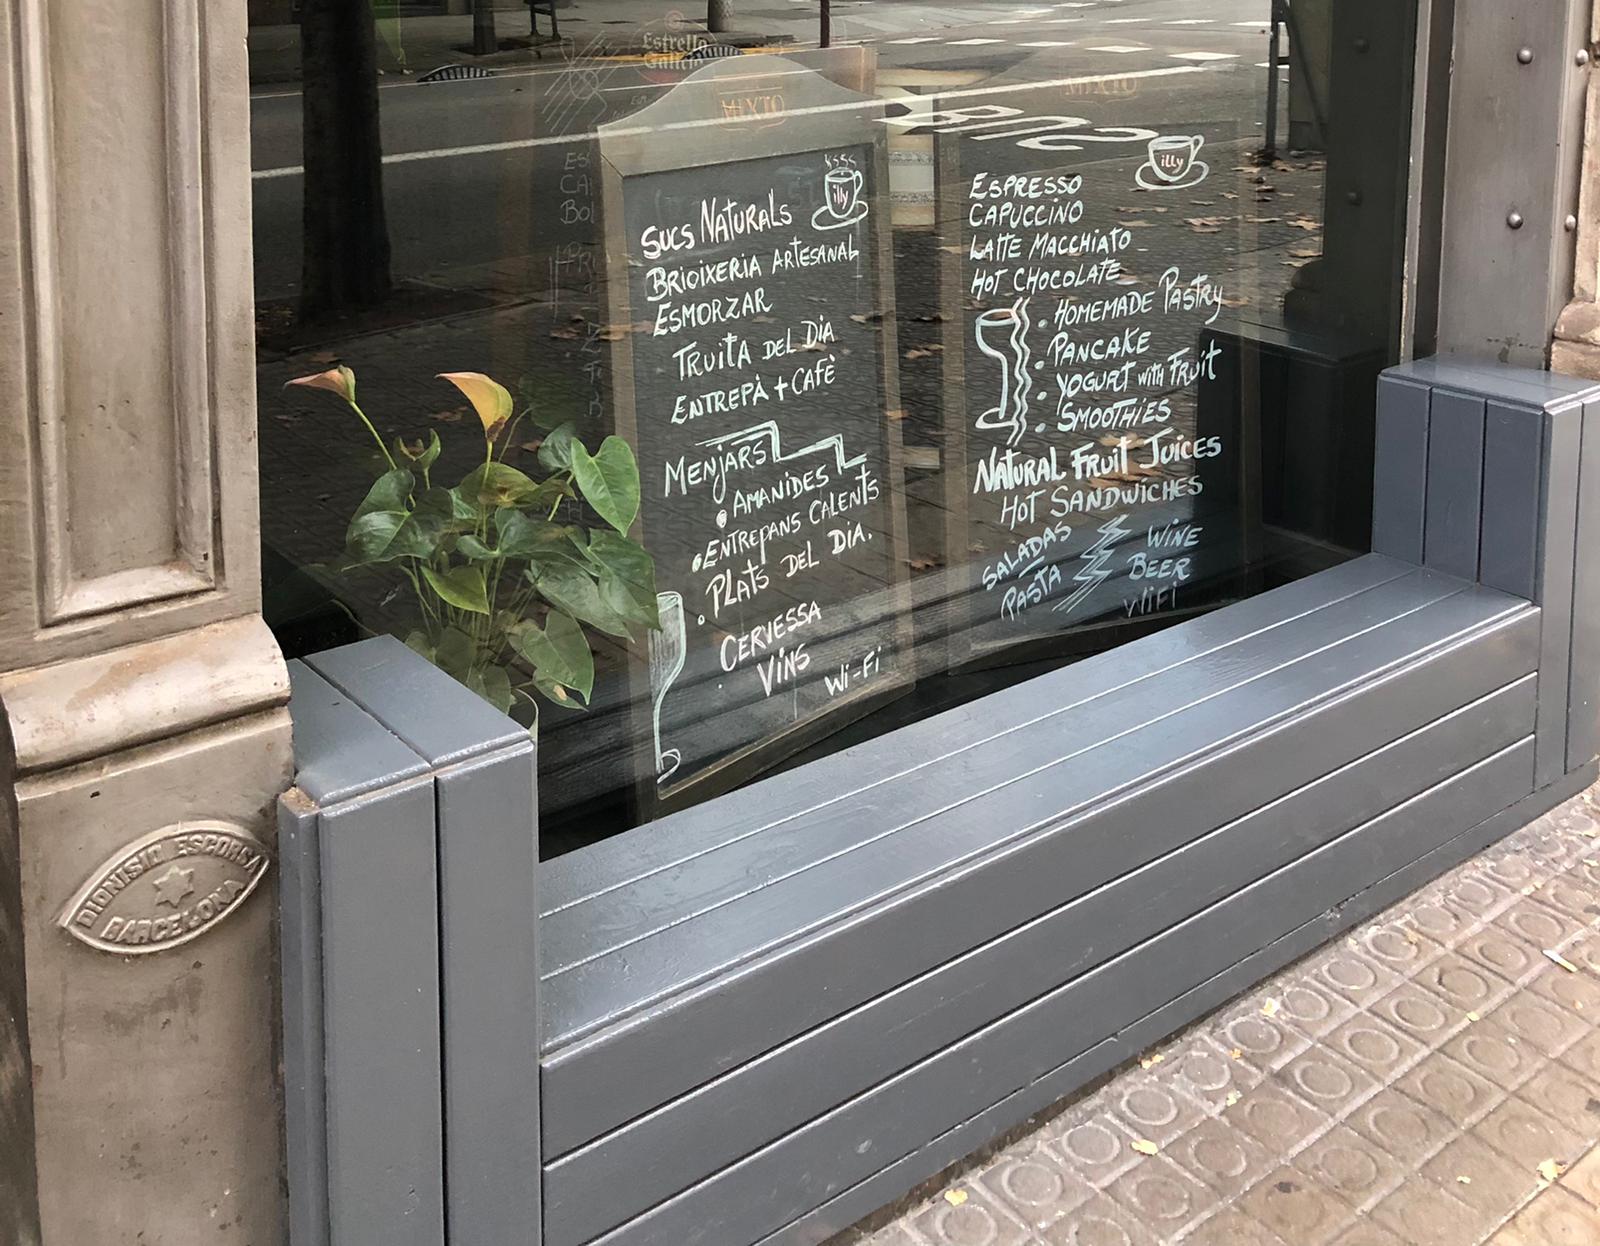 Estrella
Galicia
MIXTO
SUCS NATURALS
illy
BRIOIXERIA ARTESANAL
ESMORZAR
TRUITA DEL DIA
ENTREPÀ + CAFÈ
MENJARS
AMANIDES
ENTREPANS CALENTS
PLATS DEL DIA.
CERVESSA
VINS
Wi-Fi
MIXTO
BUS
illy
ESPRESSO
CAPUCCINO
LATTE MACCHIATO
HOT CHOCOLATE
· HOMEMADE PASTRY
· PANCAKE
· YOGURT WITH FRUIT
· SMOOTHIES
NATURAL FRUIT JUICES
HOT SANDWICHES
SALADAS
PASTA
WINE
BEER
WIFI
DIONISIO ESCORSA
BARCELONA